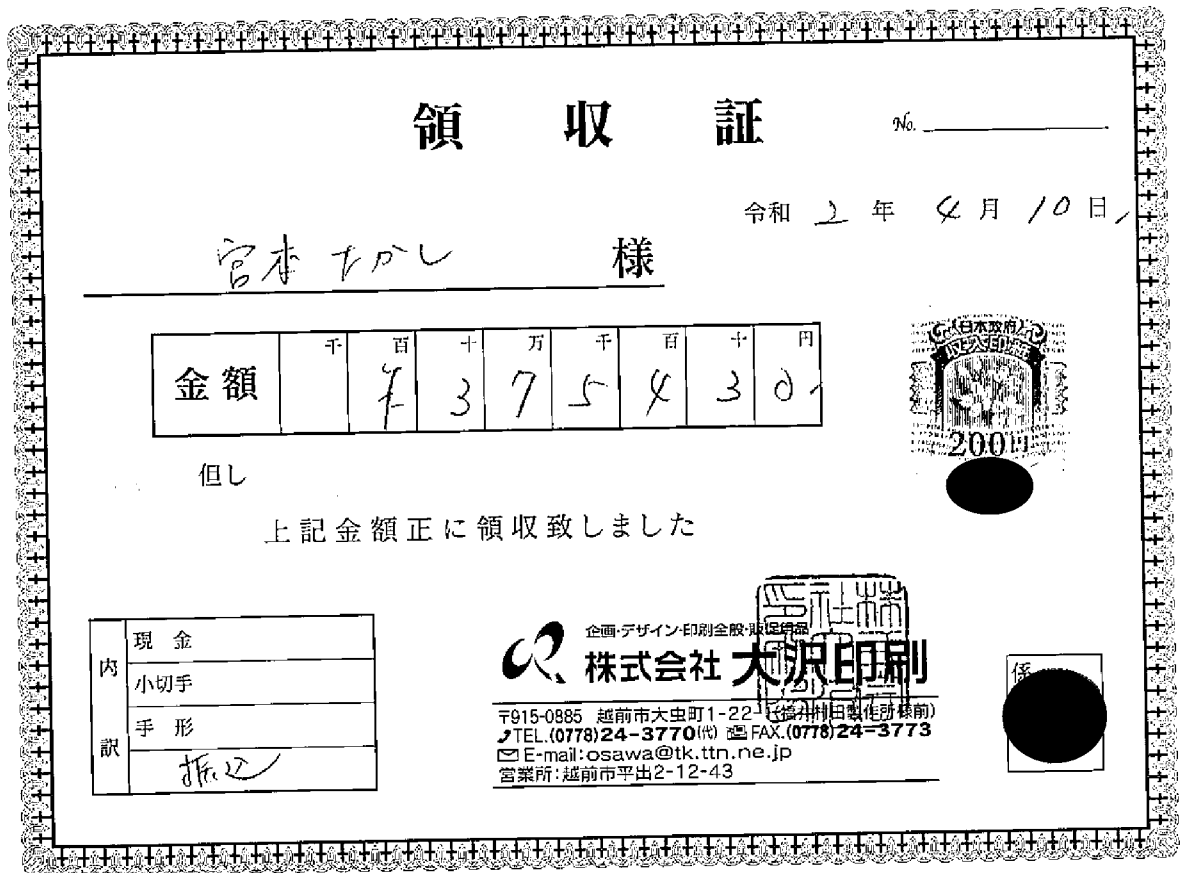 領収証
No.
令和 2 年 4 月 10 日
宮本たかし 様
金額 千 百 十 万 千 百 十 円
¥ 3 7 5 4 3 0
日本政府
収入印紙
200円
但し
上記金額正に領収致しました
内訳
現金
小切手
手形
振込
企画・デザイン・印刷全般・販促用品
株式会社 大沢印刷
〒915-0885 越前市大虫町1-22-1(福井村田製作所様前)
TEL.(0778)24-3770(代) FAX.(0778)24-3773
E-mail:osawa@tk.ttn.ne.jp
営業所:越前市平出2-12-43
係